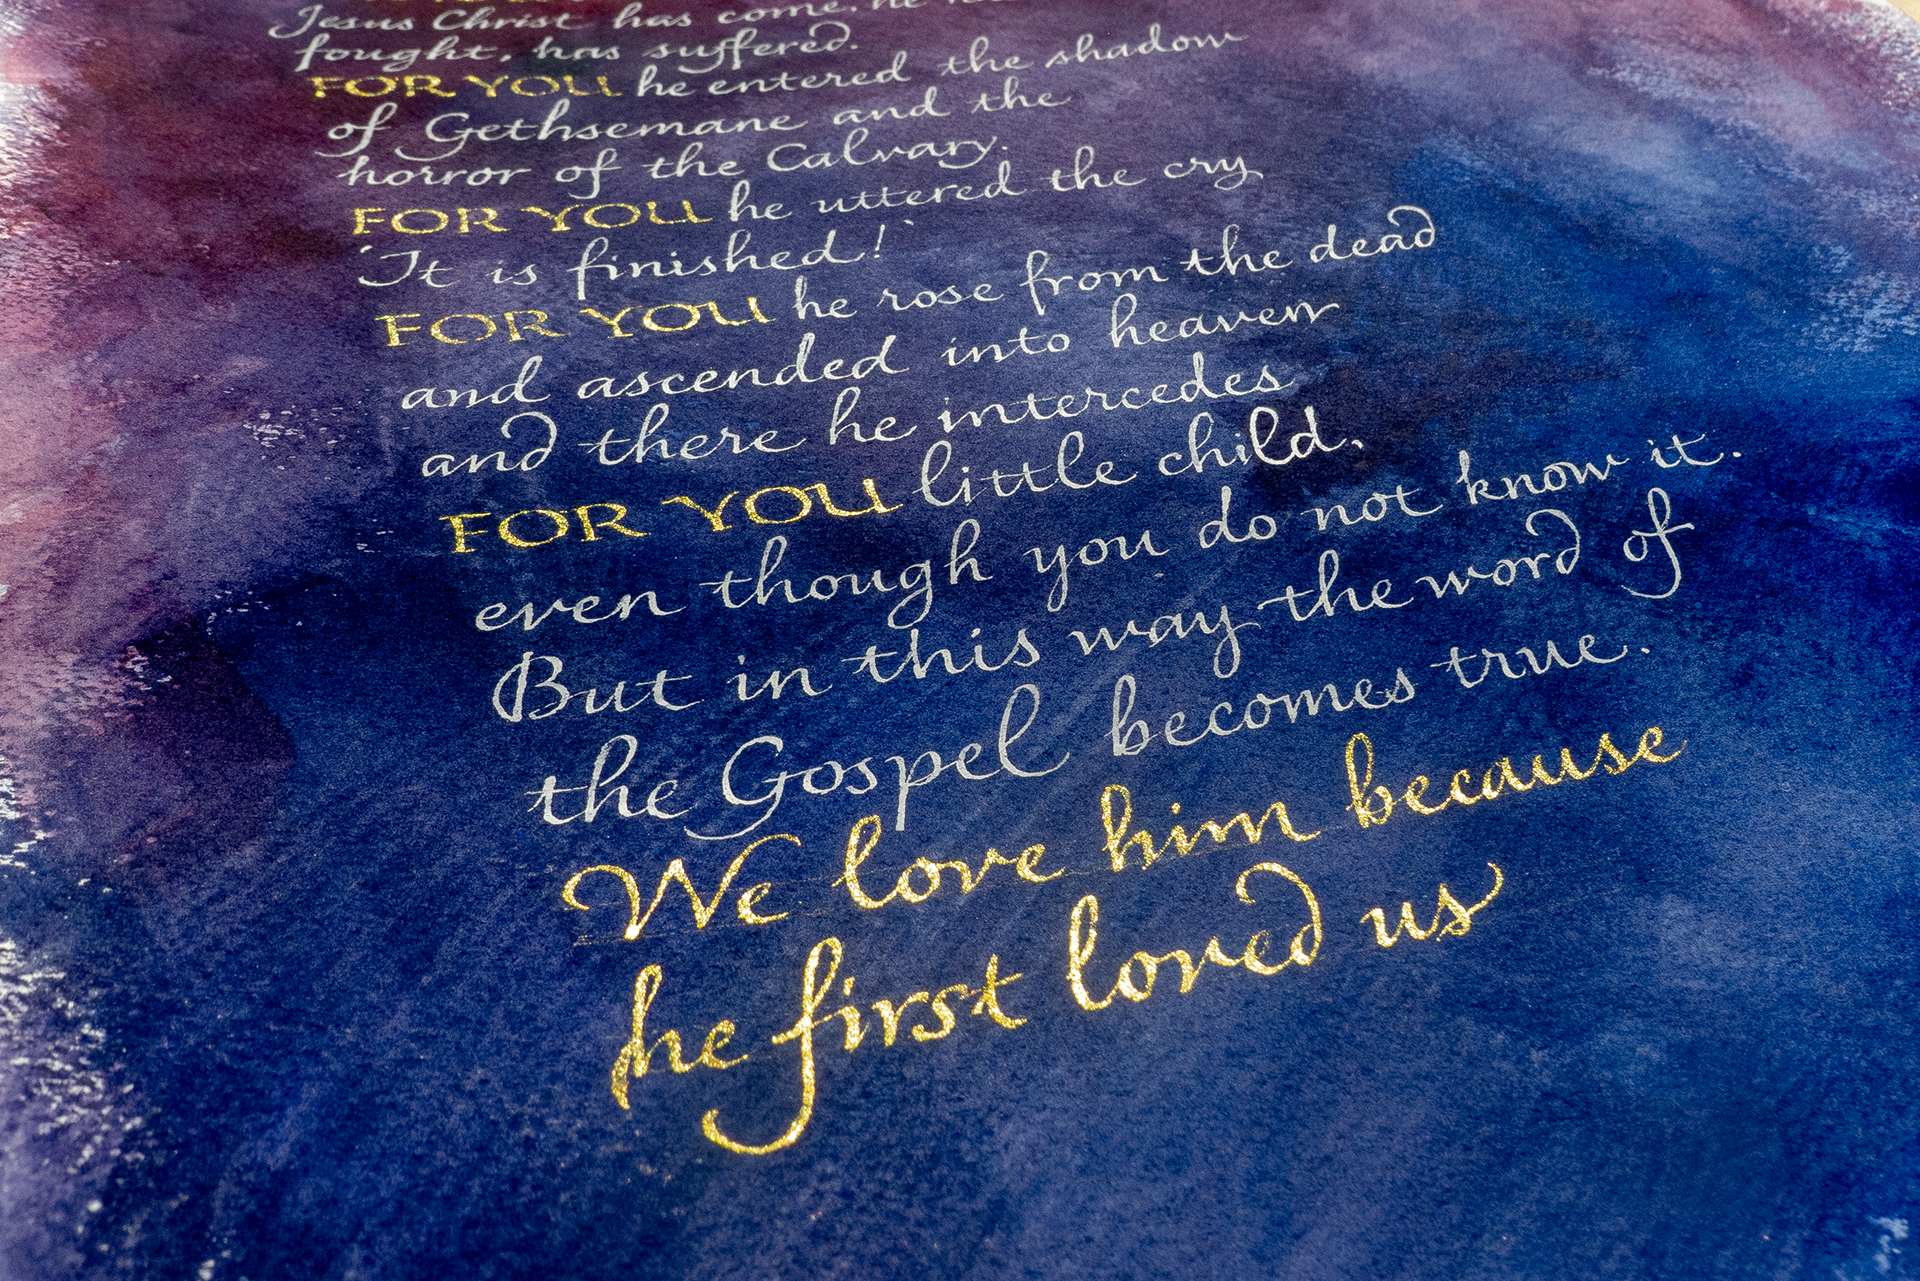 Jesus Christ has come, he
fought, has suffered.
FOR YOU he entered the shadow
of Gethsemane and the
horror of the Calvary.
FOR YOU he uttered the cry
'It is finished!'
FOR YOU he rose from the dead
and ascended into heaven
and there he intercedes
FOR YOU little child,
even though you do not know it.
But in this way the word of
the Gospel becomes true.
We love him because
he first loved us